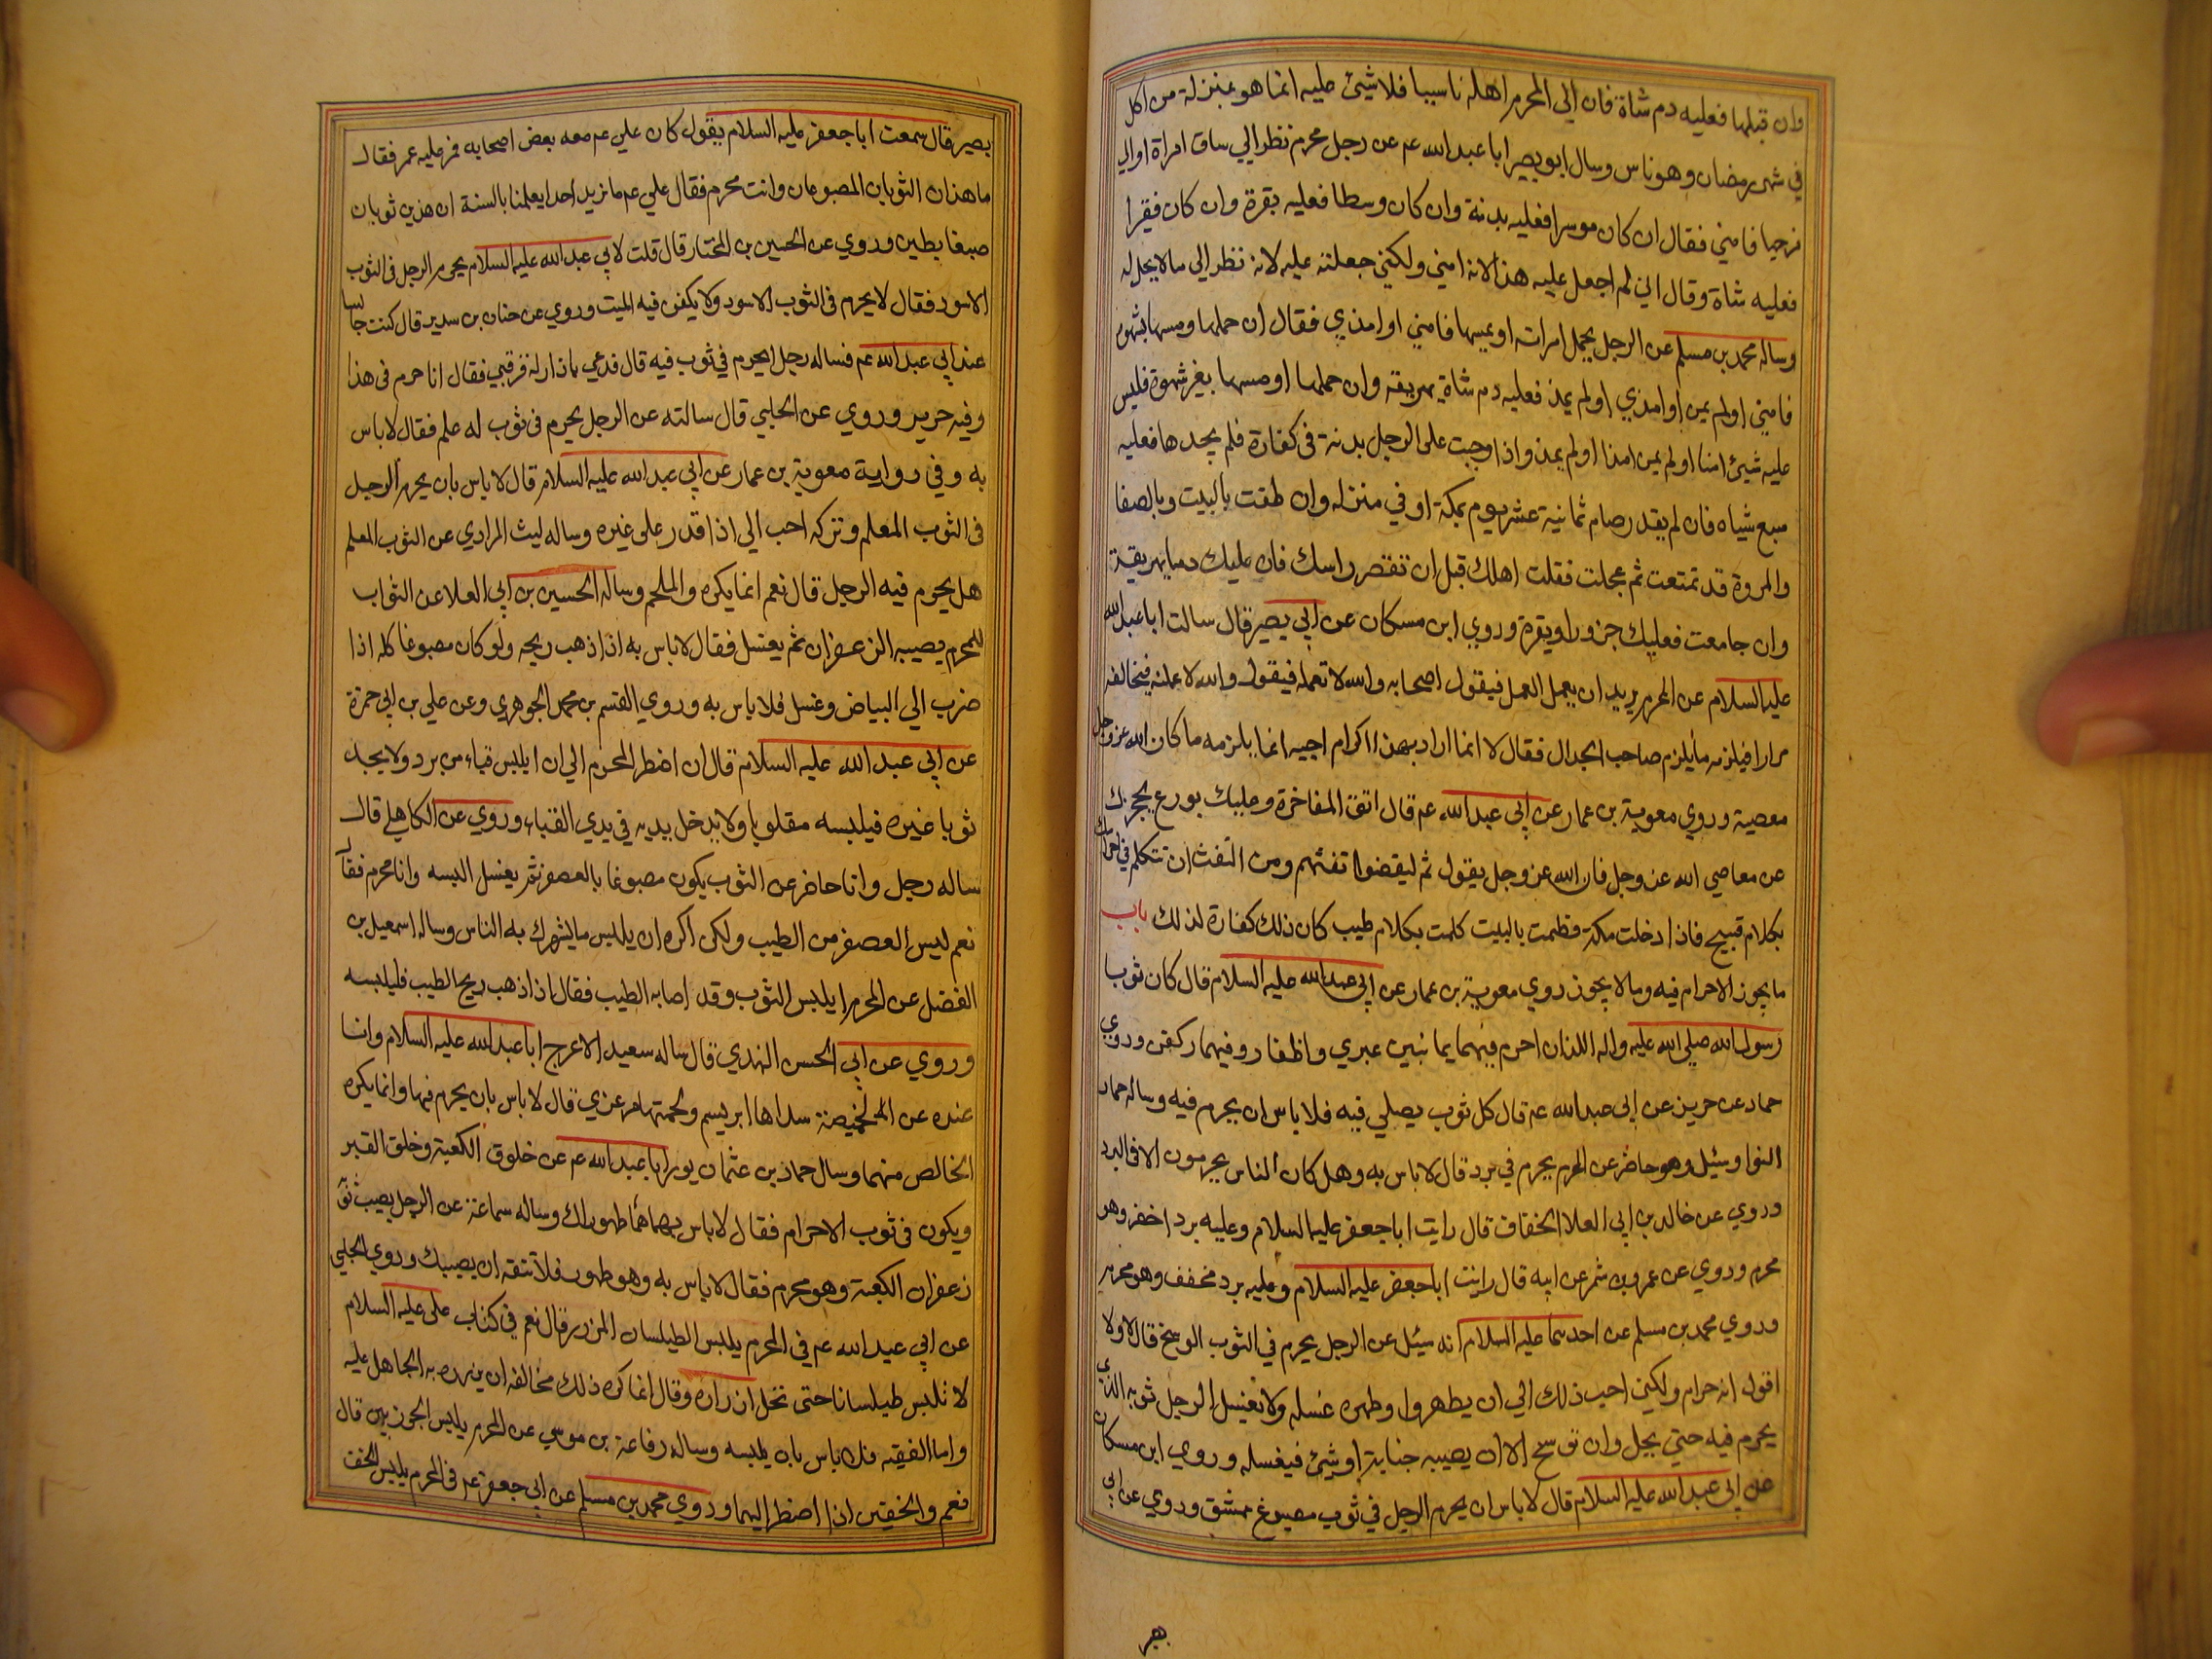 وان قبلها فعليه دم شاة فان اتي المحرم اهله ناسيا فلا شيئ عليه انما هو بمنزلة من اكل
في شهر رمضان وهو ناس وسال ابو بصير ابا عبد الله عم عن رجل محرم نظر الي ساق امراة او الي
فرجها فامني فقال ان كان موسرا فعليه بدنة وان كان وسطا فعليه بقرة وان كان فقيرا
فعليه شاة وقال اني لم اجعل عليه هذا لانه امني ولكني جعلته عليه لانه نظر الي ما لا يحل له
وساله محمد بن مسلم عن الرجل يحمل امراته او يمسها فامني او امذي فقال ان حملها ومسها بشهوة
فامني او لم يمن او امذي او لم يمذ فعليه دم شاة يهريقه وان حملها او مسها بغير شهوة فليس
عليه شيئ امنا او لم يمن امذا او لم يمذ واذا وجبت علي الرجل بدنة في كفارة فلم يجدها فعليه
سبع شياه فان لم يقدر صام ثمانية عشر يوم بمكة او في منزله وان طفت بالبيت وبالصفا
والمروة قد تمتعت ثم عجلت فقلت اهلك قبل ان تقصر راسك فان عليك دما يهريقة
وان جامعت فعليك جزور او بقرة وروي ابن مسكان عن ابي بصير قال سالت ابا عبد الله
عليه السلام عن المحرم يريد ان يعمل العمل فيقول اصحابه والله لا تعمله فيقول والله لا عملنه فيخالفه
مرارا فيلزمه ما يلزم صاحب الجدال فقال لا انما اراد بهذا اكرام اخيه انما يلزمه ما كان الله عز وجل
معصية وروي معوية بن عمار عن ابي عبد الله عم قال اتق المفاخرة وعليك بورع يحجزك
عن معاصي الله عز وجل فان الله عز وجل يقول ثم ليقضوا تفثهم ومن التفث ان تتكلم في احرامك
بكلام قبيح فاذا دخلت مكة وطفت بالبيت كلمت بكلام طيب كان ذلك كفارة لذلك باب
ما يجوز الاحرام فيه وما لا يجوز روي معوية بن عمار عن ابي عبد الله عليه السلام قال كان ثوبا
رسول الله صلي الله عليه واله اللذان احرم فيهما يمانيين عبري واظفار وفيهما كفن وروي
حماد عن حريز عن ابي عبد الله عم قال كل ثوب يصلي فيه فلا باس ان يحرم فيه وساله حماد
النوا وسئيل وهو حاضر عن المحرم يحرم في برد قال لا باس به وهل كان الناس يحرمون الا في البرد
وروي عن خالد بن ابي العلا الخفاف قال رايت ابا جعفر عليه السلام وعليه برد اخضر وهو
محرم وروي عن عمرو بن شمر عن ابيه قال رايت ابا جعفر عليه السلام وعليه برد مخفف وهو محرم
وروي محمد بن مسلم عن احدهما عليه السلام انه سئيل عن الرجل يحرم في الثوب الوسخ قال لا ولا
اقول انه حرام ولكني احب ذلك الي ان يطهروا وطهره غسله ولا يغتسل الرجل ثوبه الذي
يحرم فيه حتي يحل وان توسخ الا ان يصيبه جنابة او شيئ فيغسله وروي ابن مسكان
عن ابي عبد الله عليه السلام قال لا باس ان يحرم الرجل في ثوب مصبوغ بمشق وروي عن ابي
بصير قال سمعت ابا جعفر عليه السلام يقول كان علي عم معه بعض اصحابه فمر عليه عمر فقال
ما هذان الثوبان المصبوعان وانت محرم فقال علي عم ما نريد احدا يعلمنا بالسنة ان هذين ثوبان
صبغا بطين وروي عن الحسين بن المختار قال قلت لابي عبد الله عليه السلام يحرم الرجل في الثوب
الاسود فقال لا يحرم في الثوب الاسود ولا يكفن فيه الميت وروي عن حنان بن سدير قال كنت جالسا
عند ابي عبد الله عم فساله رجل ايحرم في ثوب فيه قال فدعي بازار له فرقبي فقال انا حرم في هذا
وفيه حرير وروي عن الحلبي قال سالته عن الرجل يحرم في ثوب له علم فقال لا باس
به وفي رواية معوية بن عمار عن ابي عبد الله عليه السلام قال لا باس بان يحرم الرجل
في الثوب المعلم وتركه احب الي اذا قدر علي غيره وساله ليث المرادي عن الثوب المعلم
هل يحرم فيه الرجل قال نعم انما يكره والملحم وساله الحسين بن ابي العلا عن الثواب
للمحرم يصيبه الزعفران ثم يغتسل فقال لا باس به اذا ذهب ريحه ولو كان مصبوغا كله اذا
ضرب الي البياض وغسل فلا باس به وروي القسم بن محمد الجوهري وعن علي بن ابي حمزة
عن ابي عبد الله عليه السلام قال ان اضطر المحرم الي ان يلبس قباء من برد ولا يجد
ثوبا غيره فيلبسه مقلوبا ولا يدخل يديه في يدي القباء وروي عن الكاهلي قال
ساله رجل وانا حاضر عن الثوب يكون مصبوغا بالعصفر ثم يغسل البسه وانا محرم فقال
نعم ليس العصفر من الطيب ولكن اكره ان يلبس ما يشهرك به الناس وساله اسمعيل بن
الفضل عن المحرم ايلبس الثوب وقد اصابه الطيب فقال اذا ذهب ريح الطيب فليلبسه
وروي عن ابي الحسن النهدي قال ساله سعيد الاعرج ابا عبد الله عليه السلام وانا
عنده عن الخميصة سداها ابريسم ولحمتها مرعزي قال لا باس بان يحرم فيها وانما يكره
الخالص منهما وسال حماد بن عثمان ابا عبد الله عم عن خلوق الكعبة وخلق القبر
ويكون في ثوب الاحرام فقال لا باس بهما هما طهوران وساله سماعة عن الرجل يصيب ثوبه
زعفران الكعبة وهو محرم فقال لا باس به وهو طهور فلا تتقه ان يصيبك وروي الحلبي
عن ابي عبد الله عم في المحرم يلبس الطيلسان المزرر قال نعم في كتاب علي عليه السلام
لا تلبس طيلسانا حتي تحل ازراره وقال انما كره ذلك مخالفه ان يزره به الجاهل عليه
واما الفقيه فلا باس بان يلبسه وساله رفاعة بن موسي عن المحرم يلبس الجوربين قال
نعم والخفين اذا اضطر اليهما وروي محمد بن مسلم عن ابي جعفر عم في المحرم يلبس الخف